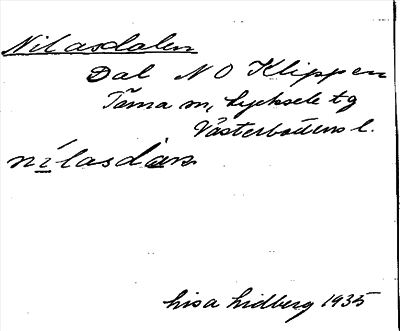 Nilasdalen
Dal N O Klippen
Tärna sn, Lycksele tg
Västerbottens l.
nílasdàn
Lisa Lidberg 1935